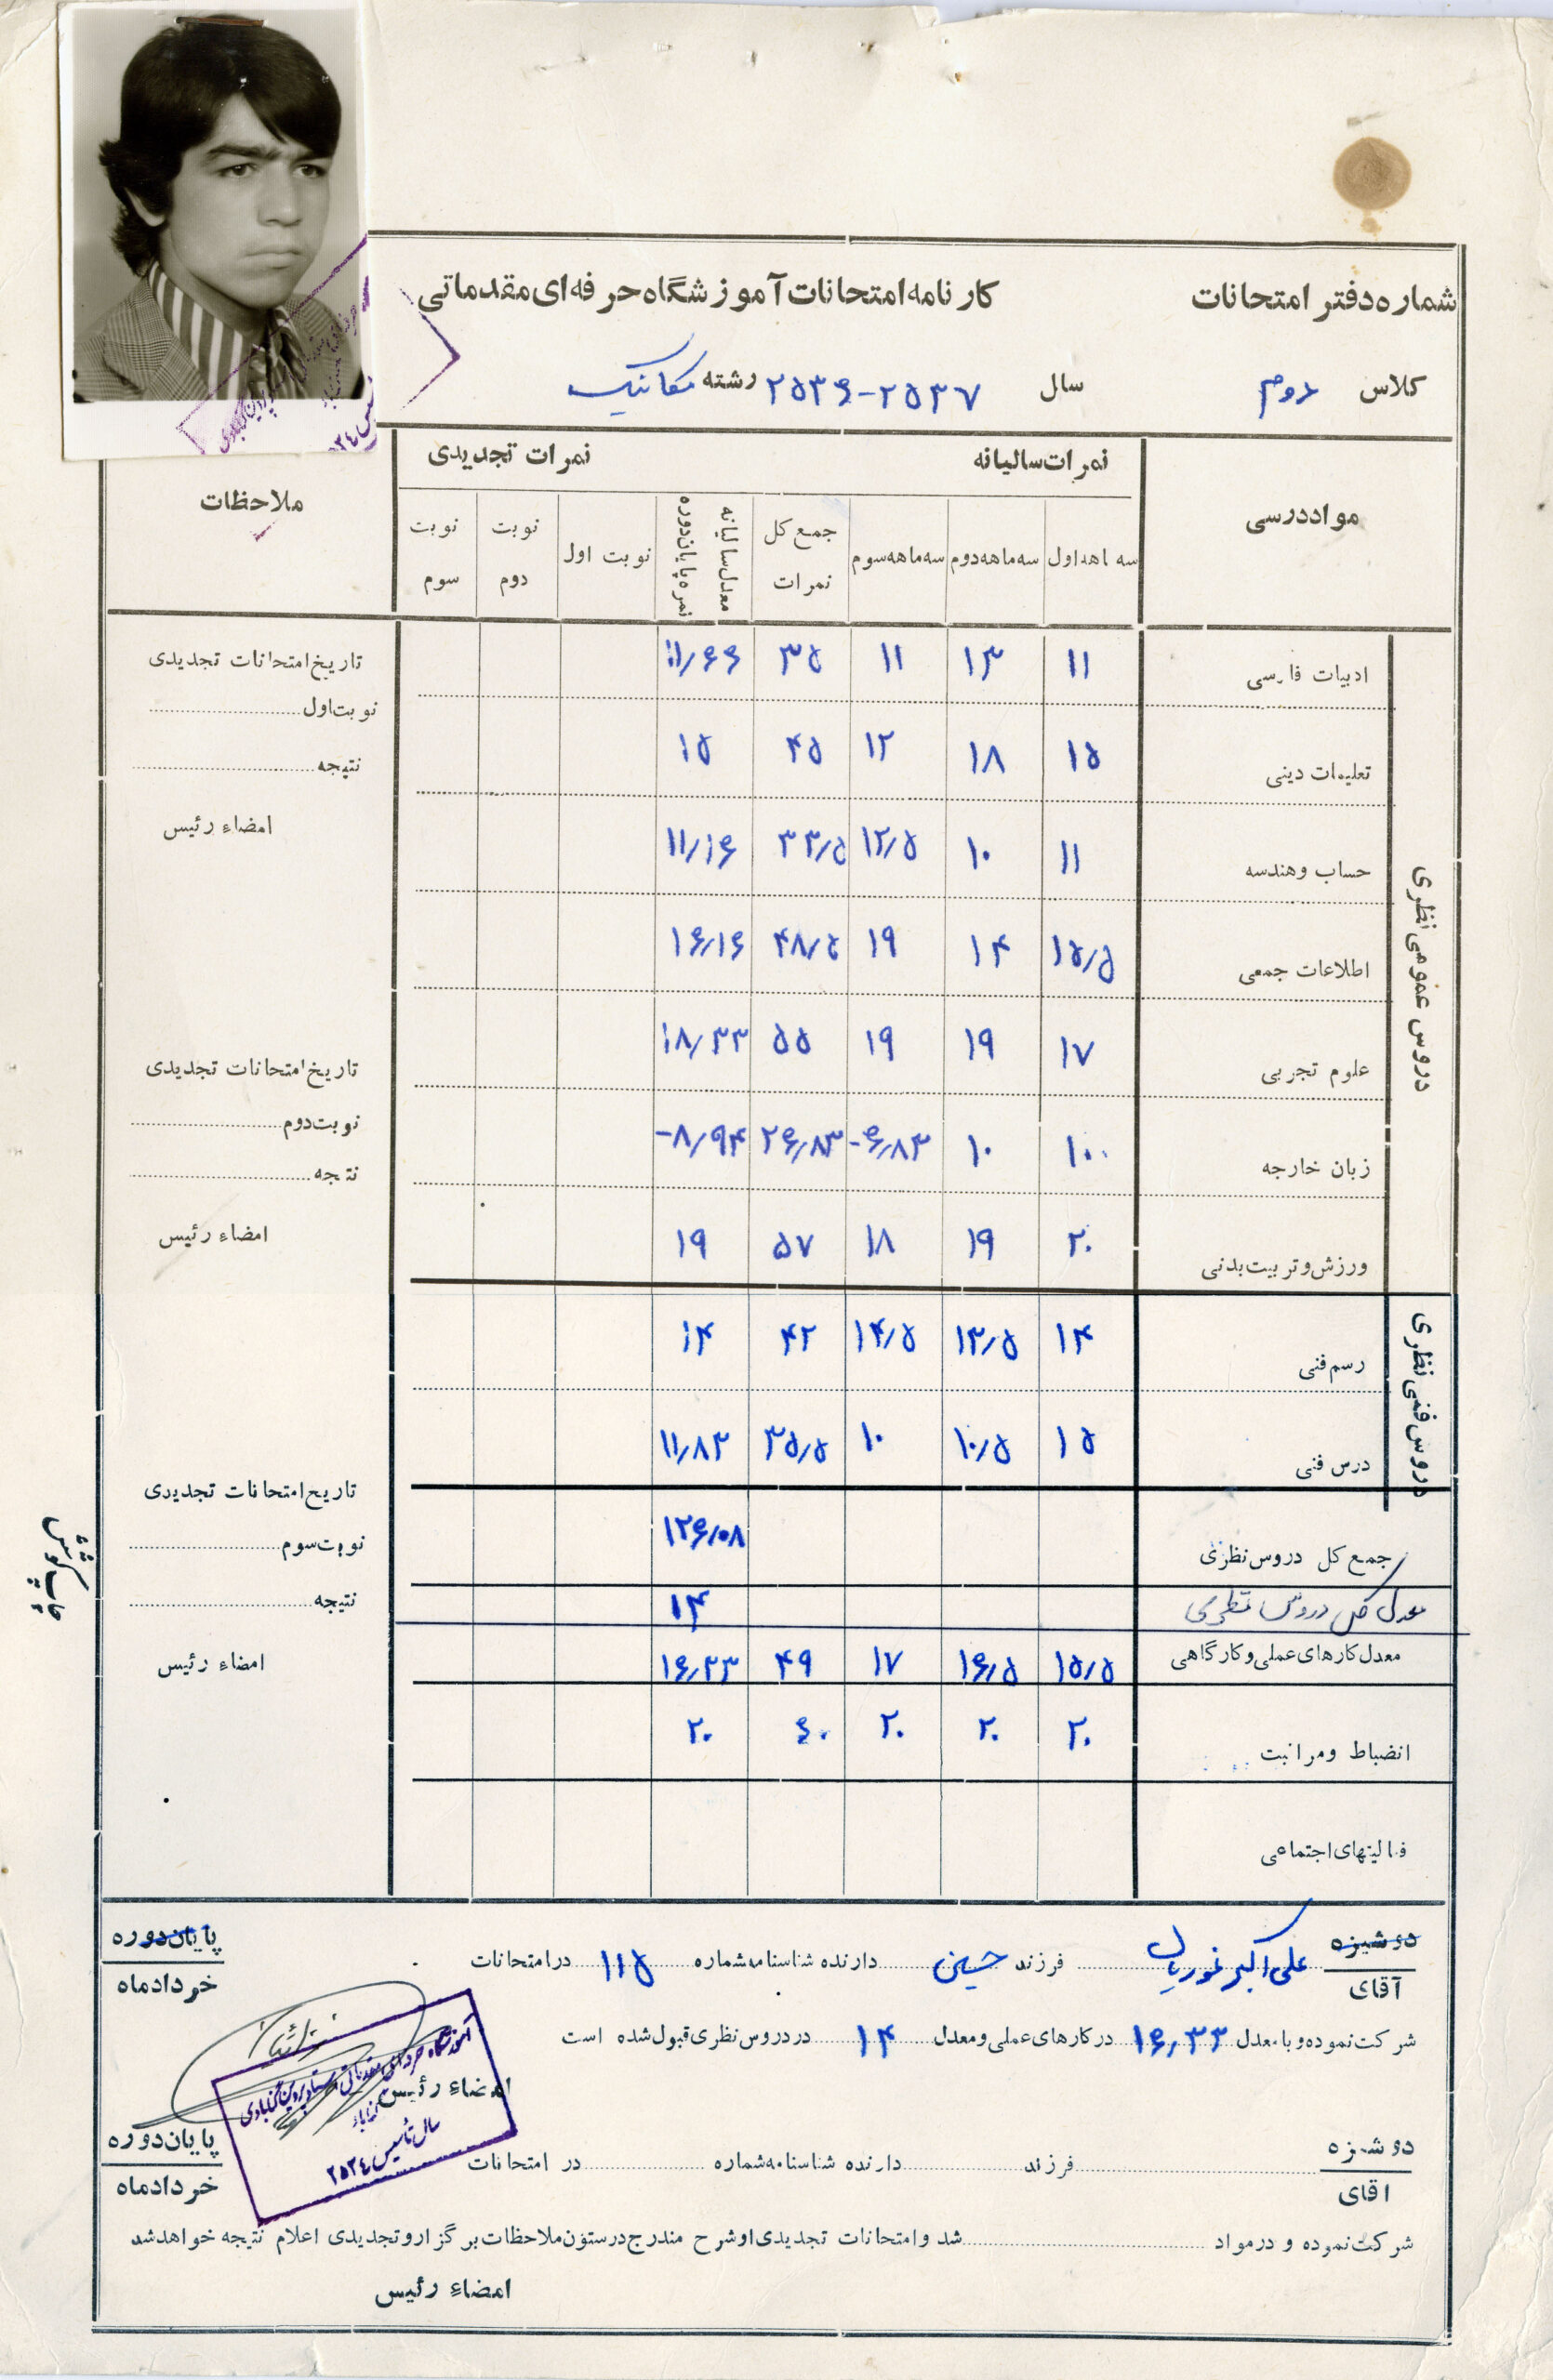 شماره دفتر امتحانات
کارنامه امتحانات آموزشگاه حرفه‌ای مقدماتی
کلاس دوم سال ۲۵۳۷-۲۵۳۶ رشته مکانیک
مواد درسی نمرات سالیانه نمرات تجدیدی ملاحظات
سه ماهه اول سه ماهه دوم سه ماهه سوم جمع کل نمرات معدل سالیانه نمره پایان دوره نوبت اول نوبت دوم نوبت سوم
دروس عمومی نظری
ادبیات فارسی ۱۱ ۱۳ ۱۱ ۳۵ ۱۱/۶۶
تعلیمات دینی ۱۵ ۱۸ ۱۲ ۴۵ ۱۵
حساب و هندسه ۱۱ ۱۰ ۱۲/۵ ۳۳/۵ ۱۱/۱۶
اطلاعات جمعی ۱۵/۵ ۱۴ ۱۹ ۴۸/۵ ۱۶/۱۶
علوم تجربی ۱۷ ۱۹ ۱۹ ۵۵ ۱۸/۳۳
زبان خارجه ۱۰ ۱۰ -۶/۸۳ ۲۶/۸۳ -۸/۹۴
ورزش و تربیت بدنی ۲۰ ۱۹ ۱۸ ۵۷ ۱۹
دروس فنی نظری
رسم فنی ۱۴ ۱۳/۵ ۱۴/۵ ۴۲ ۱۴
درس فنی ۱۵ ۱۰/۵ ۱۰ ۳۵/۵ ۱۱/۸۳
جمع کل دروس نظری ۱۲۶/۰۸
معدل کل دروس نظری ۱۴
معدل کارهای عملی و کارگاهی ۱۵/۵ ۱۶/۵ ۱۷ ۴۹ ۱۶/۳۳
انضباط و مراقبت ۲۰ ۲۰ ۲۰ ۶۰ ۲۰
فعالیتهای اجتماعی
تاریخ امتحانات تجدیدی
نوبت اول
نتیجه
امضاء رئیس
تاریخ امتحانات تجدیدی
نوبت دوم
نتیجه
امضاء رئیس
تاریخ امتحانات تجدیدی
نوبت سوم
نتیجه
امضاء رئیس
دوشیزه
آقای علی اکبر فرزند حسین دارنده شناسنامه شماره ۱۱۵ در امتحانات پایان دوره
خرداد ماه
شرکت نموده و با معدل ۱۶/۳۳ در کارهای عملی و معدل ۱۴ در دروس نظری قبول شده است
امضاء رئیس
آموزشگاه حرفه‌ای مقدماتی استاد پروین گنابادی
سال تأسیس ۲۵۳۴
دوشیزه
اقای فرزند دارنده شناسنامه شماره در امتحانات پایان دوره
خرداد ماه
شرکت نموده و در مواد شد و امتحانات تجدیدی او شرح مندرج در ستون ملاحظات برگزار و تجدیدی اعلام نتیجه خواهد شد
امضاء رئیس